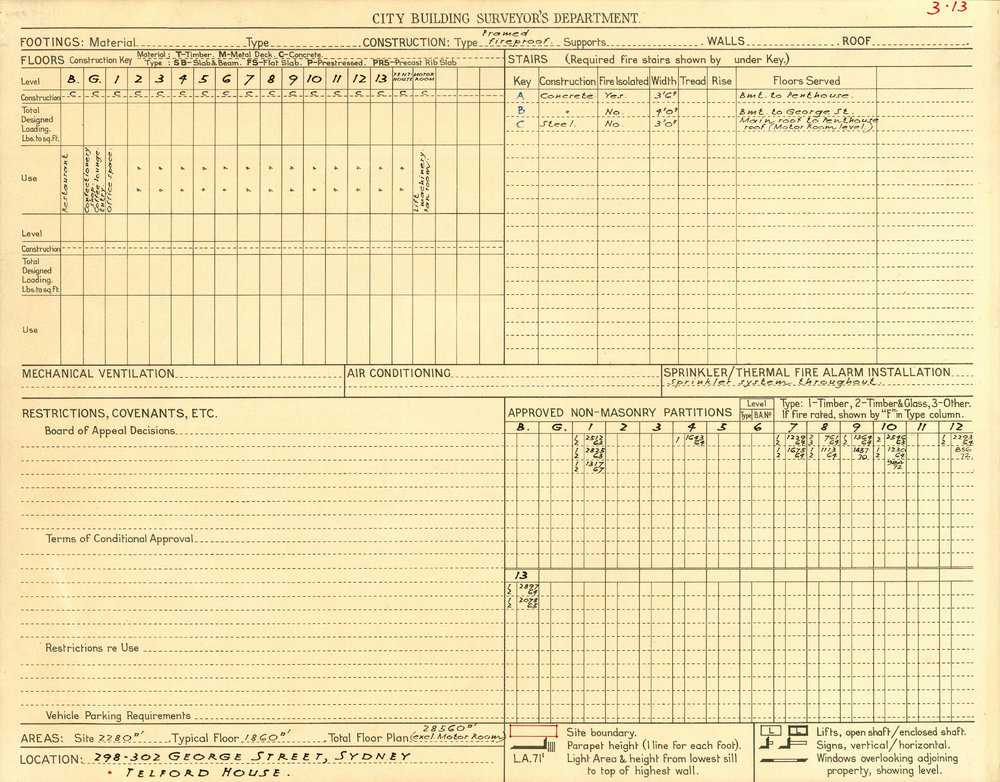 3.13
CITY BUILDING SURVEYOR'S DEPARTMENT.
FOOTINGS: Material Type CONSTRUCTION: Type Framed fireproof. Supports WALLS ROOF
FLOORS Construction Key Material: T-Timber. M-Metal Deck. C-Concrete.
Type: SB-Slab & Beam. FS-Flat Slab. P-Prestressed. PRS-Precast Rib Slab
Level B. G. 1 2 3 4 5 6 7 8 9 10 11 12 13 PENTHOUSE MOTOR ROOM
Construction C C C C C C C C C C C C C C C C C
Total
Designed
Loading.
Lbs. to sq. ft.
Use
Restaurant
Confectionery shop.
Coffee lounge.
Entry
Office space.
" " " " " " " " " " " " "
" " " " " " " " " " " " "
Lift machinery
fan room.
Level
Construction
Total
Designed
Loading.
Lbs. to sq. ft.
Use
STAIRS (Required fire stairs shown by under Key.)
Key Construction Fire Isolated Width Tread Rise Floors Served
A Concrete Yes. 3'6" Bmt. to Penthouse.
B " No. 4'0" Bmt. to George St.
C Steel. No. 3'0" Main roof to Penthouse
roof (Motor Room level.)
MECHANICAL VENTILATION
AIR CONDITIONING
SPRINKLER/THERMAL FIRE ALARM INSTALLATION
Sprinkler system throughout.
RESTRICTIONS, COVENANTS, ETC.
Board of Appeal Decisions
Terms of Conditional Approval
Restrictions re Use
Vehicle Parking Requirements
APPROVED NON-MASONRY PARTITIONS
Level
Type B.A.No
Type: 1-Timber, 2-Timber & Glass, 3-Other.
If fire rated, shown by "F" in Type column.
B. G. 1 2 3 4 5 6 7 8 9 10 11 12
1/2 2513/63 1 1643/64 1/2 1229/64 1/3 761/64 1/2 1364/64 2 2546/63 1/2 2293/64
1/2 2825/63 1/2 1675/64 1/2 1113/64 1437/70 1/2 1230/64 856/72
1/2 1317/67
13
1/2 2897/64
1/2 2078/65
AREAS: Site 2280 □' Typical Floor 1860 □' Total Floor Plan 28560 □' (excl Motor Room)
LOCATION: 298-302 GEORGE STREET, SYDNEY
• TELFORD HOUSE.
Site boundary.
Parapet height (1 line for each foot).
L.A. 71' Light Area & height from lowest sill
to top of highest wall.
L L Lifts, open shaft/enclosed shaft.
Signs, vertical/horizontal.
Windows overlooking adjoining
property, showing level.